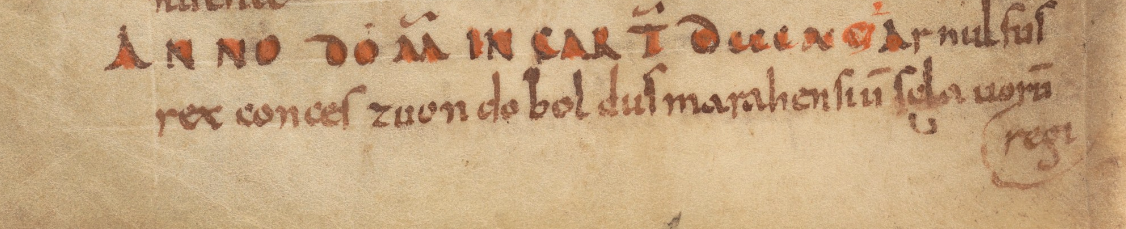 ANNO DOM̄ INCART̄ DCCCXC Arnulfus
rex conces zuondoboldus marahensiū sclauorū
regi